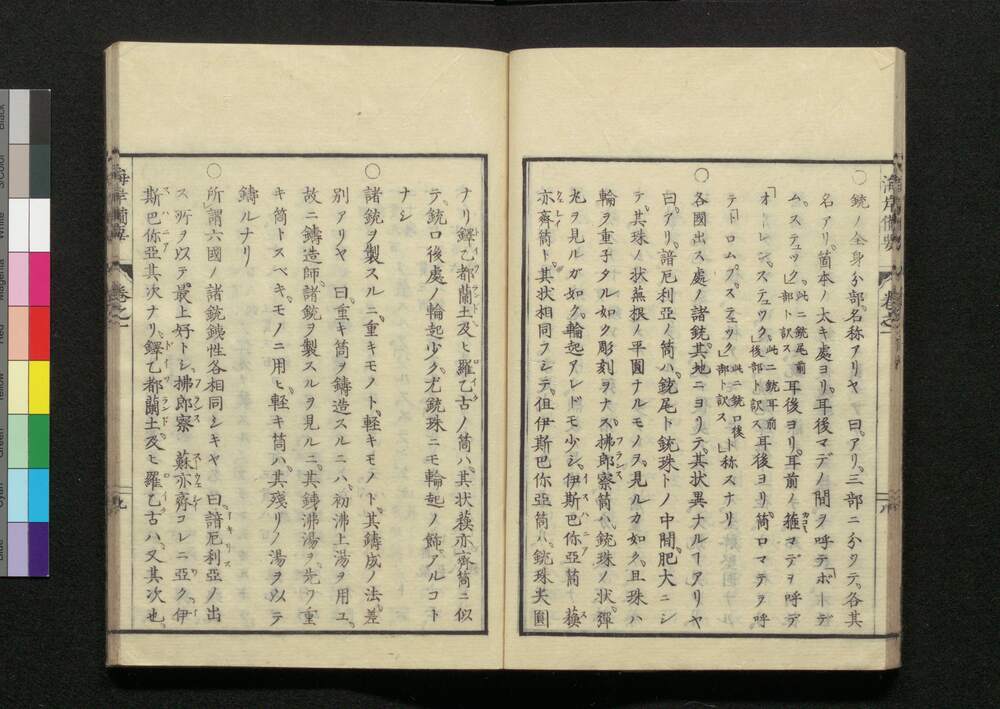 〇銃ノ全身分部名称アリヤ 曰アリ三部ニ分ツテ各其
名アリ筒本ノ太キ處ヨリ耳後マデノ間ヲ呼テ「ボーデ
ム、ステュック」此ニ銃尾前部ト訳ス 耳後ヨリ耳前ノ箍マデヲ呼デ
「オーレン、ステュック」此ニ銃耳前後部ト訳ス 耳後ヨリ筒口マテヲ呼
テ「トロムプ、ステュック」此ニ銃口後部ト訳ス ト称スナリ
〇各國出ス處ノ諸銃其地ニヨリテ其状異ナルヿアリヤ
曰アリ諳厄利亞ノ筒ハ銃尾ト銃珠トノ中間肥大ニシ
テ其珠ノ状蕪根ノ平圓ナルモノヲ見ルカ如ク且珠ハ
輪ヲ重子タル如ク彫刻ヲナス拂郎察筒ハ銃珠ノ状彈
丸ヲ見ルガ如ク輪起アレドモ少シ伊斯巴你亞筒 蘓
亦齊筒ト其状相同フシテ但伊斯巴你亞筒ハ銃珠尖圓
ナリ鐸乙都蘭土及ヒ羅乙古ノ筒ハ其状蘓亦齊筒ニ似
テ銃口後處ノ輪起少ク尤銃珠ニモ輪起ノ飾アルコト
ナシ
〇諸銃ヲ製スルニ重キモノト軽キモノト其鋳成ノ法差
別アリヤ 曰重キ筒ヲ鋳造スルニハ初沸上湯ヲ用ユ
故ニ鋳造師諸銃ヲ製スルヲ見ルニ其鋳沸湯ヲ先ツ重
キ筒トスベキモノニ用ヒ軽キ筒ハ其残リノ湯ヲ以テ
鋳ルナリ
〇所謂六國ノ諸銃銕性各相同シキヤ 曰諳厄利亞ノ出
ス所ヲ以テ最上好トシ拂郎察 蘓亦齊コレニ亞ク伊
斯巴你亞其次ナリ鐸乙都蘭土及モ羅乙古ハ又其次也
海岸備要
巻之一
九